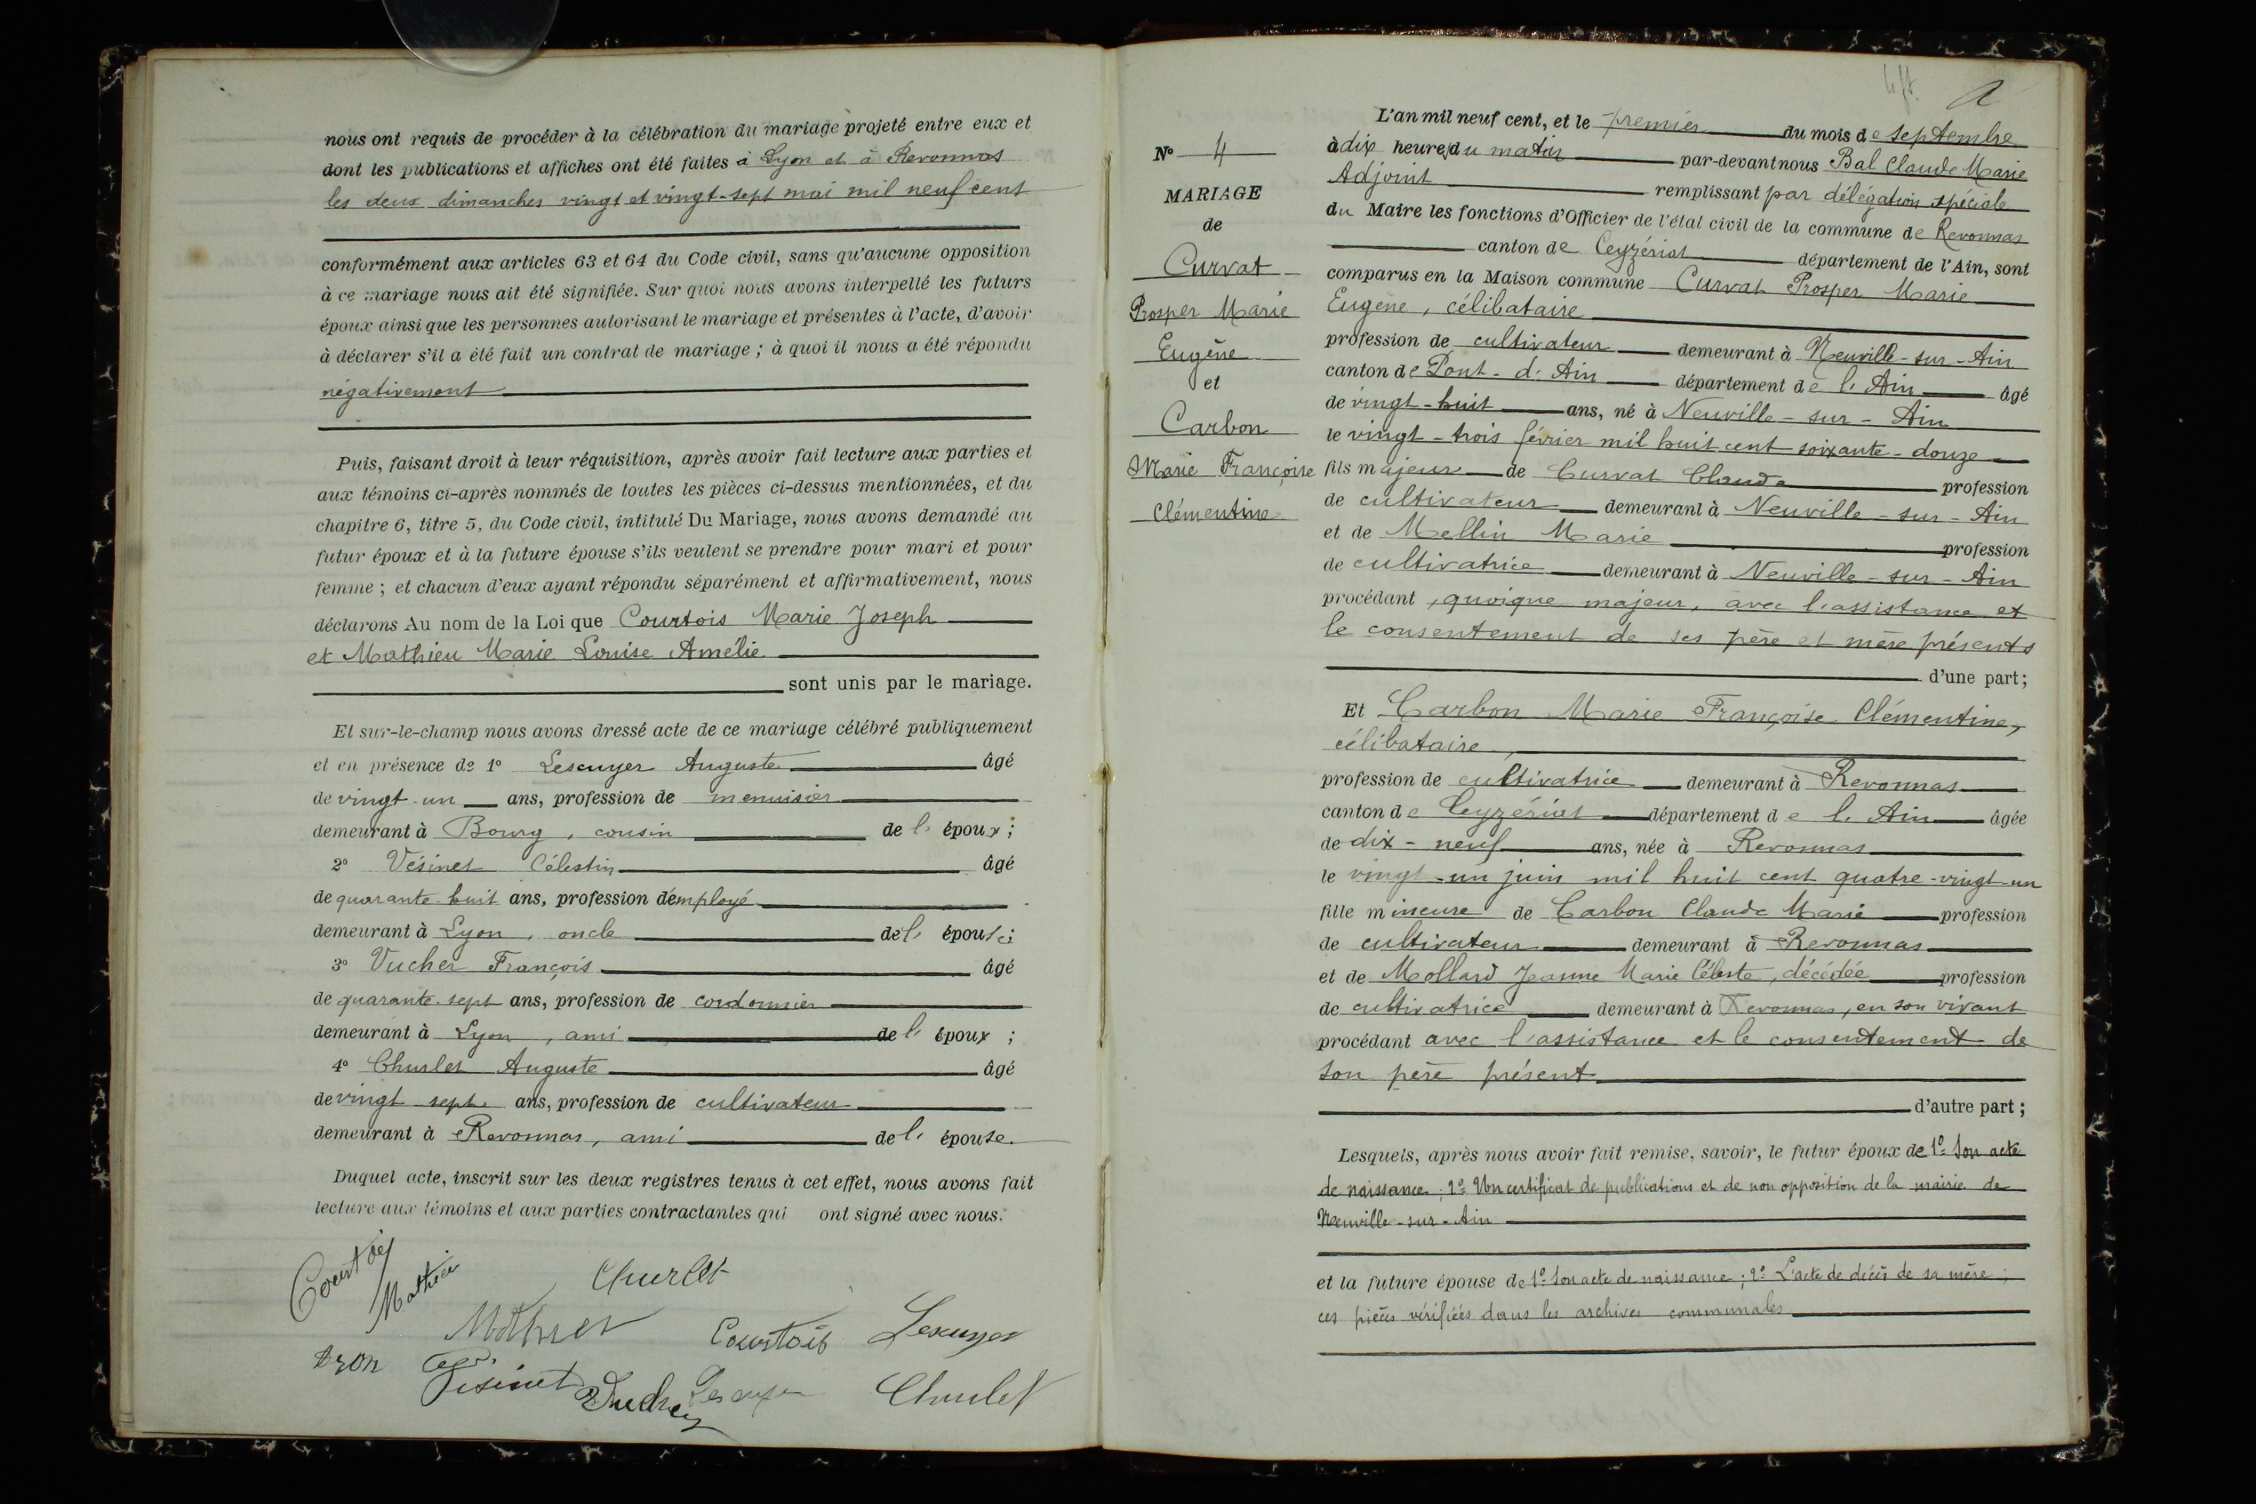 nous ont requis de procéder à la célébration du mariage projeté entre eux et
dont les publications et affiches ont été faites à Lyon et à Revonnas
les deux dimanches vingt et vingt-sept mai mil neuf cent
conformément aux articles 63 et 64 du Code civil, sans qu'aucune opposition
à ce mariage nous ait été signifiée. Sur quoi nous avons interpellé les futurs
époux ainsi que les personnes autorisant le mariage et présentes à l'acte, d'avoir
à déclarer s'il a été fait un contrat de mariage ; à quoi il nous a été répondu
négativement
Puis, faisant droit à leur réquisition, après avoir fait lecture aux parties et
aux témoins ci-après nommés de toutes les pièces ci-dessus mentionnées, et du
chapitre 6, titre 5, du Code civil, intitulé Du Mariage, nous avons demandé au
futur époux et à la future épouse s'ils veulent se prendre pour mari et pour
femme ; et chacun d'eux ayant répondu séparément et affirmativement, nous
déclarons Au nom de la Loi que Courtois Marie Joseph
et Mathieu Marie Louise Amélie
sont unis par le mariage.
Et sur-le-champ nous avons dressé acte de ce mariage célébré publiquement
et en présence de 1° Lescuyer Auguste âgé
de vingt-un ans, profession de menuisier
demeurant à Bourg, cousin de l' époux ;
2° Vésinet Célestin âgé
de quarante-huit ans, profession d'employé
demeurant à Lyon, oncle de l' épouse ;
3° Vucher François âgé
de quarante-sept ans, profession de cordonnier
demeurant à Lyon, ami de l' époux ;
4° Churlet Auguste âgé
de vingt-sept ans, profession de cultivateur
demeurant à Revonnas, ami de l' épouse.
Duquel acte, inscrit sur les deux registres tenus à cet effet, nous avons fait
lecture aux témoins et aux parties contractantes qui ont signé avec nous.
Courtois
Mathieu
Churlet
Mathieu
Courtois Lescuyer
Vésinet
Churlet
N° 4
MARIAGE
de
Curvat
Prosper Marie
Eugène
et
Carbon
Marie Françoise
Clémentine
L'an mil neuf cent, et le premier du mois de septembre
à dix heures du matin par-devant nous Bal Claude Marie
Adjoint remplissant par délégation spéciale
du Maire les fonctions d'Officier de l'état civil de la commune de Revonnas
canton de Ceyzériat département de l'Ain, sont
comparus en la Maison commune Curvat Prosper Marie
Eugène, célibataire
profession de cultivateur demeurant à Neuville-sur-Ain
canton de Pont-d'Ain département de l'Ain âgé
de vingt-huit ans, né à Neuville-sur-Ain
le vingt-trois février mil huit cent soixante-douze
fils majeur de Curvat Claude profession
de cultivateur demeurant à Neuville-sur-Ain
et de Mellin Marie profession
de cultivatrice demeurant à Neuville-sur-Ain
procédant, quoique majeur, avec l'assistance et
le consentement de ses père et mère présents
d'une part ;
Et Carbon Marie Françoise Clémentine,
célibataire,
profession de cultivatrice demeurant à Revonnas
canton de Ceyzériat département de l'Ain âgée
de dix-neuf ans, née à Revonnas
le vingt-un juin mil huit cent quatre-vingt-un
fille mineure de Carbon Claude Marie profession
de cultivateur demeurant à Revonnas
et de Mollard Jeanne Marie Céleste, décédée profession
de cultivatrice demeurant à Revonnas, en son vivant
procédant avec l'assistance et le consentement de
son père présent
d'autre part ;
Lesquels, après nous avoir fait remise, savoir, le futur époux de 1° Son acte
de naissance ; 2° Un certificat de publications et de non opposition de la mairie de
Neuville-sur-Ain
et la future épouse de 1° Son acte de naissance ; 2° L'acte de décès de sa mère ;
ces pièces vérifiées dans les archives communales